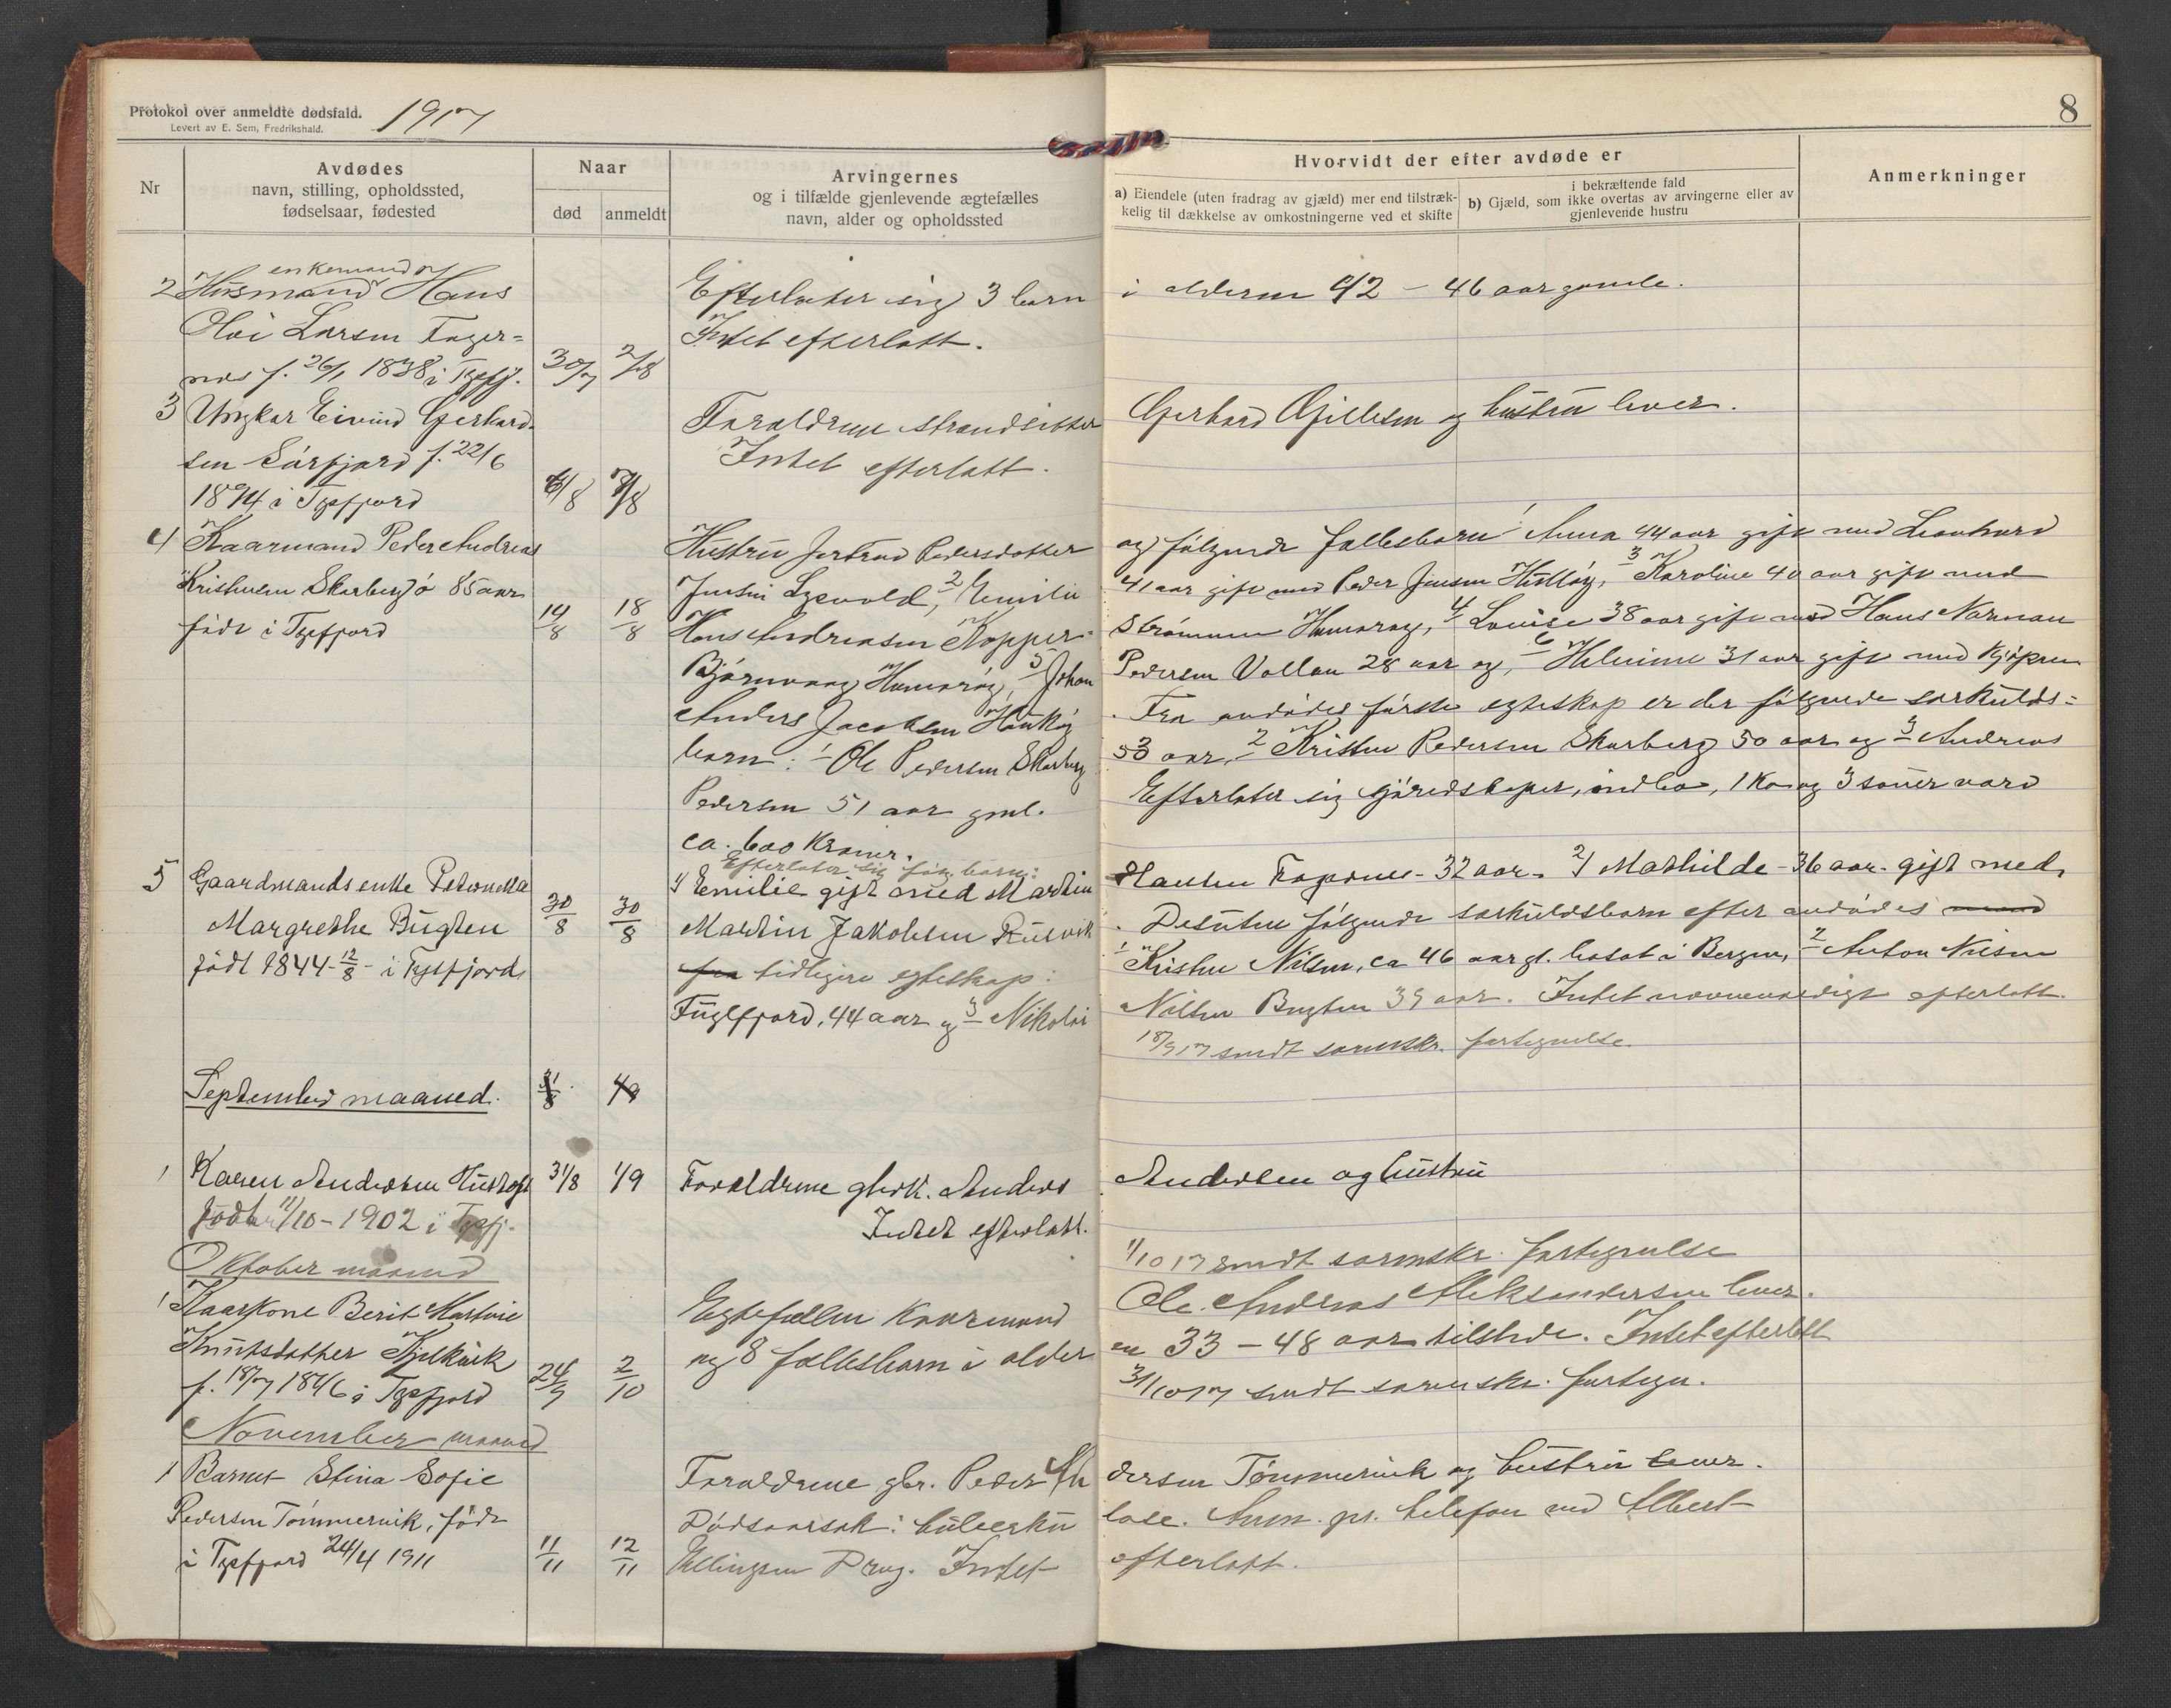 Protokol over anmeldte dødsfald. 1917
Levert av E. Sem, Fredrikshald.
8
Nr
Avdødes
navn, stilling, opholdssted,
fødselsaar, fødested
Naar
død
anmeldt
Arvingernes
og i tilfælde gjenlevende ægtefælles
navn, alder og opholdssted
Hvorvidt der efter avdøde er
a) Eiendele (uten fradrag av gjæld) mer end tilstræk-
kelig til dækkelse av omkostningerne ved et skifte
i bekræftende fald
b) Gjæld, som ikke overtas av arvingerne eller av
gjenlevende hustru
Anmerkninger
enkemand og
2 Husmand Hans Efterlater sig 3 barn i alderen 42 - 46 aar gamle.
Larsen Fager- Intet efterlatt.
nes f. 26/1 1838 i Tysfj. 30/7 2/8
3 Ungkar Eivind Gerhard- Foraldrene strandsitter Gerhard Gjillesen og hustru lever.
sen Sørfjord f. 22/6 Intet efterlatt.
1894 i Tysfjord 6/8 7/8
4 Kaarmand Peder Andreas Hustru Jertrud Pedersdatter og følgende fallesbarn 1 Anna 44 aar gift med Leonhard
Kristensen Skarberg ö 85 aar Jensin Lyevold, 2 Emilie 41 aar gift med Peder Jensen Husløy, 3 Karoline 40 aar gift med
födt i Tysfjord 14/8 18/8 Hans Andreasen Kopper- Strømmen Hamarøy, 4 Louise 38 aar gift med Hans Norman
Bjørnvaag Hamarøy, 5 Johan Pedersen Vollan 28 aar og, 6 Helmine 31 aar gift med Kjøpsnes
Anders Jacobsen Haukøy. Fra avdødes første egteskap er der følgende særkulds-
barn: 1 Ole Pedersen Skarberg 53 aar, 2 Kristen Pedersen Skarberg 50 aar og 3 Andreas
Pedersen 51 aar gml. Efterlater sig gaaredskaper, indbo, 1 Ko og 3 sauer vard
ca. 600 Kroner.
Efterlater sig følg. barn:
5 Gaardmands enke Petronella 1/ Emilie gift med Martin Hansen Kopsnes - 32 aar. 2/ Mathilde - 36 aar. gift med
Margrethe Bugten 30/8 30/8 Martin Jakobsen Rusvik. Desuten følgende særkuldsbarn efter avdødes mand
født 1844-12/8 - i Tysfjord, fra tidligere egteskap: 1 Kristen Nilsen, ca 46 aar gl. bosat i Bergen, 2 Anton Nilsen
Fuglfjord, 44 aar og 3 Nikolai Nilsen Bugten 39 aar. Intet nævneværdigt efterlatt.
18/9 17 sendt sorenskr. fortegnelse
September maaned. 31/8 4/9
1 Karen Andersen Husdal 31/8 1/9 Foraldrene gbrk. Anders Andersen og hustru
født 11/10 - 1902 i Tysfj. Intet efterlatt.
Oktober maaned 1/10 17 sendt sorenskr. fortegnelse
1 Kaarkone Berit Martine Egtefællen Kaarmand Ole Andreas Aleksandersen lever.
Knutsdatter Kjelkvik og 8 fallesbarn i alderen 33 - 48 aar tilstede. Intet efterlatt
f. 18/7 1846 i Tysfjord 24/9 2/10 31/10 17 sendt sorenskr. fortegn.
November maaned
1 Barnet Stina Sofie Foraldrene gbr. Peder An dersen Tømmervik og hustru lever.
Pedersen Tømmervik, født Dødsaarsak: tuberku lose. Anm. pr. telefon ved Albert
i Tysfjord 24/4 1911 11/11 12/11 Ellingsen Drag. Intet efterlatt.